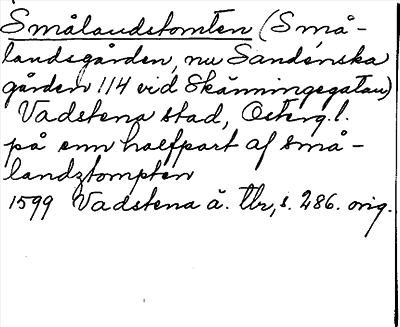 Smålandstomten (Små-
landsgården, nu Sandénska
gården 114 vid Skänningegatan)
Vadstena stad, Österg. l.
på enn halfpart af små-
landztompten
1599 Vadstena ä. Tb, s. 286. orig.